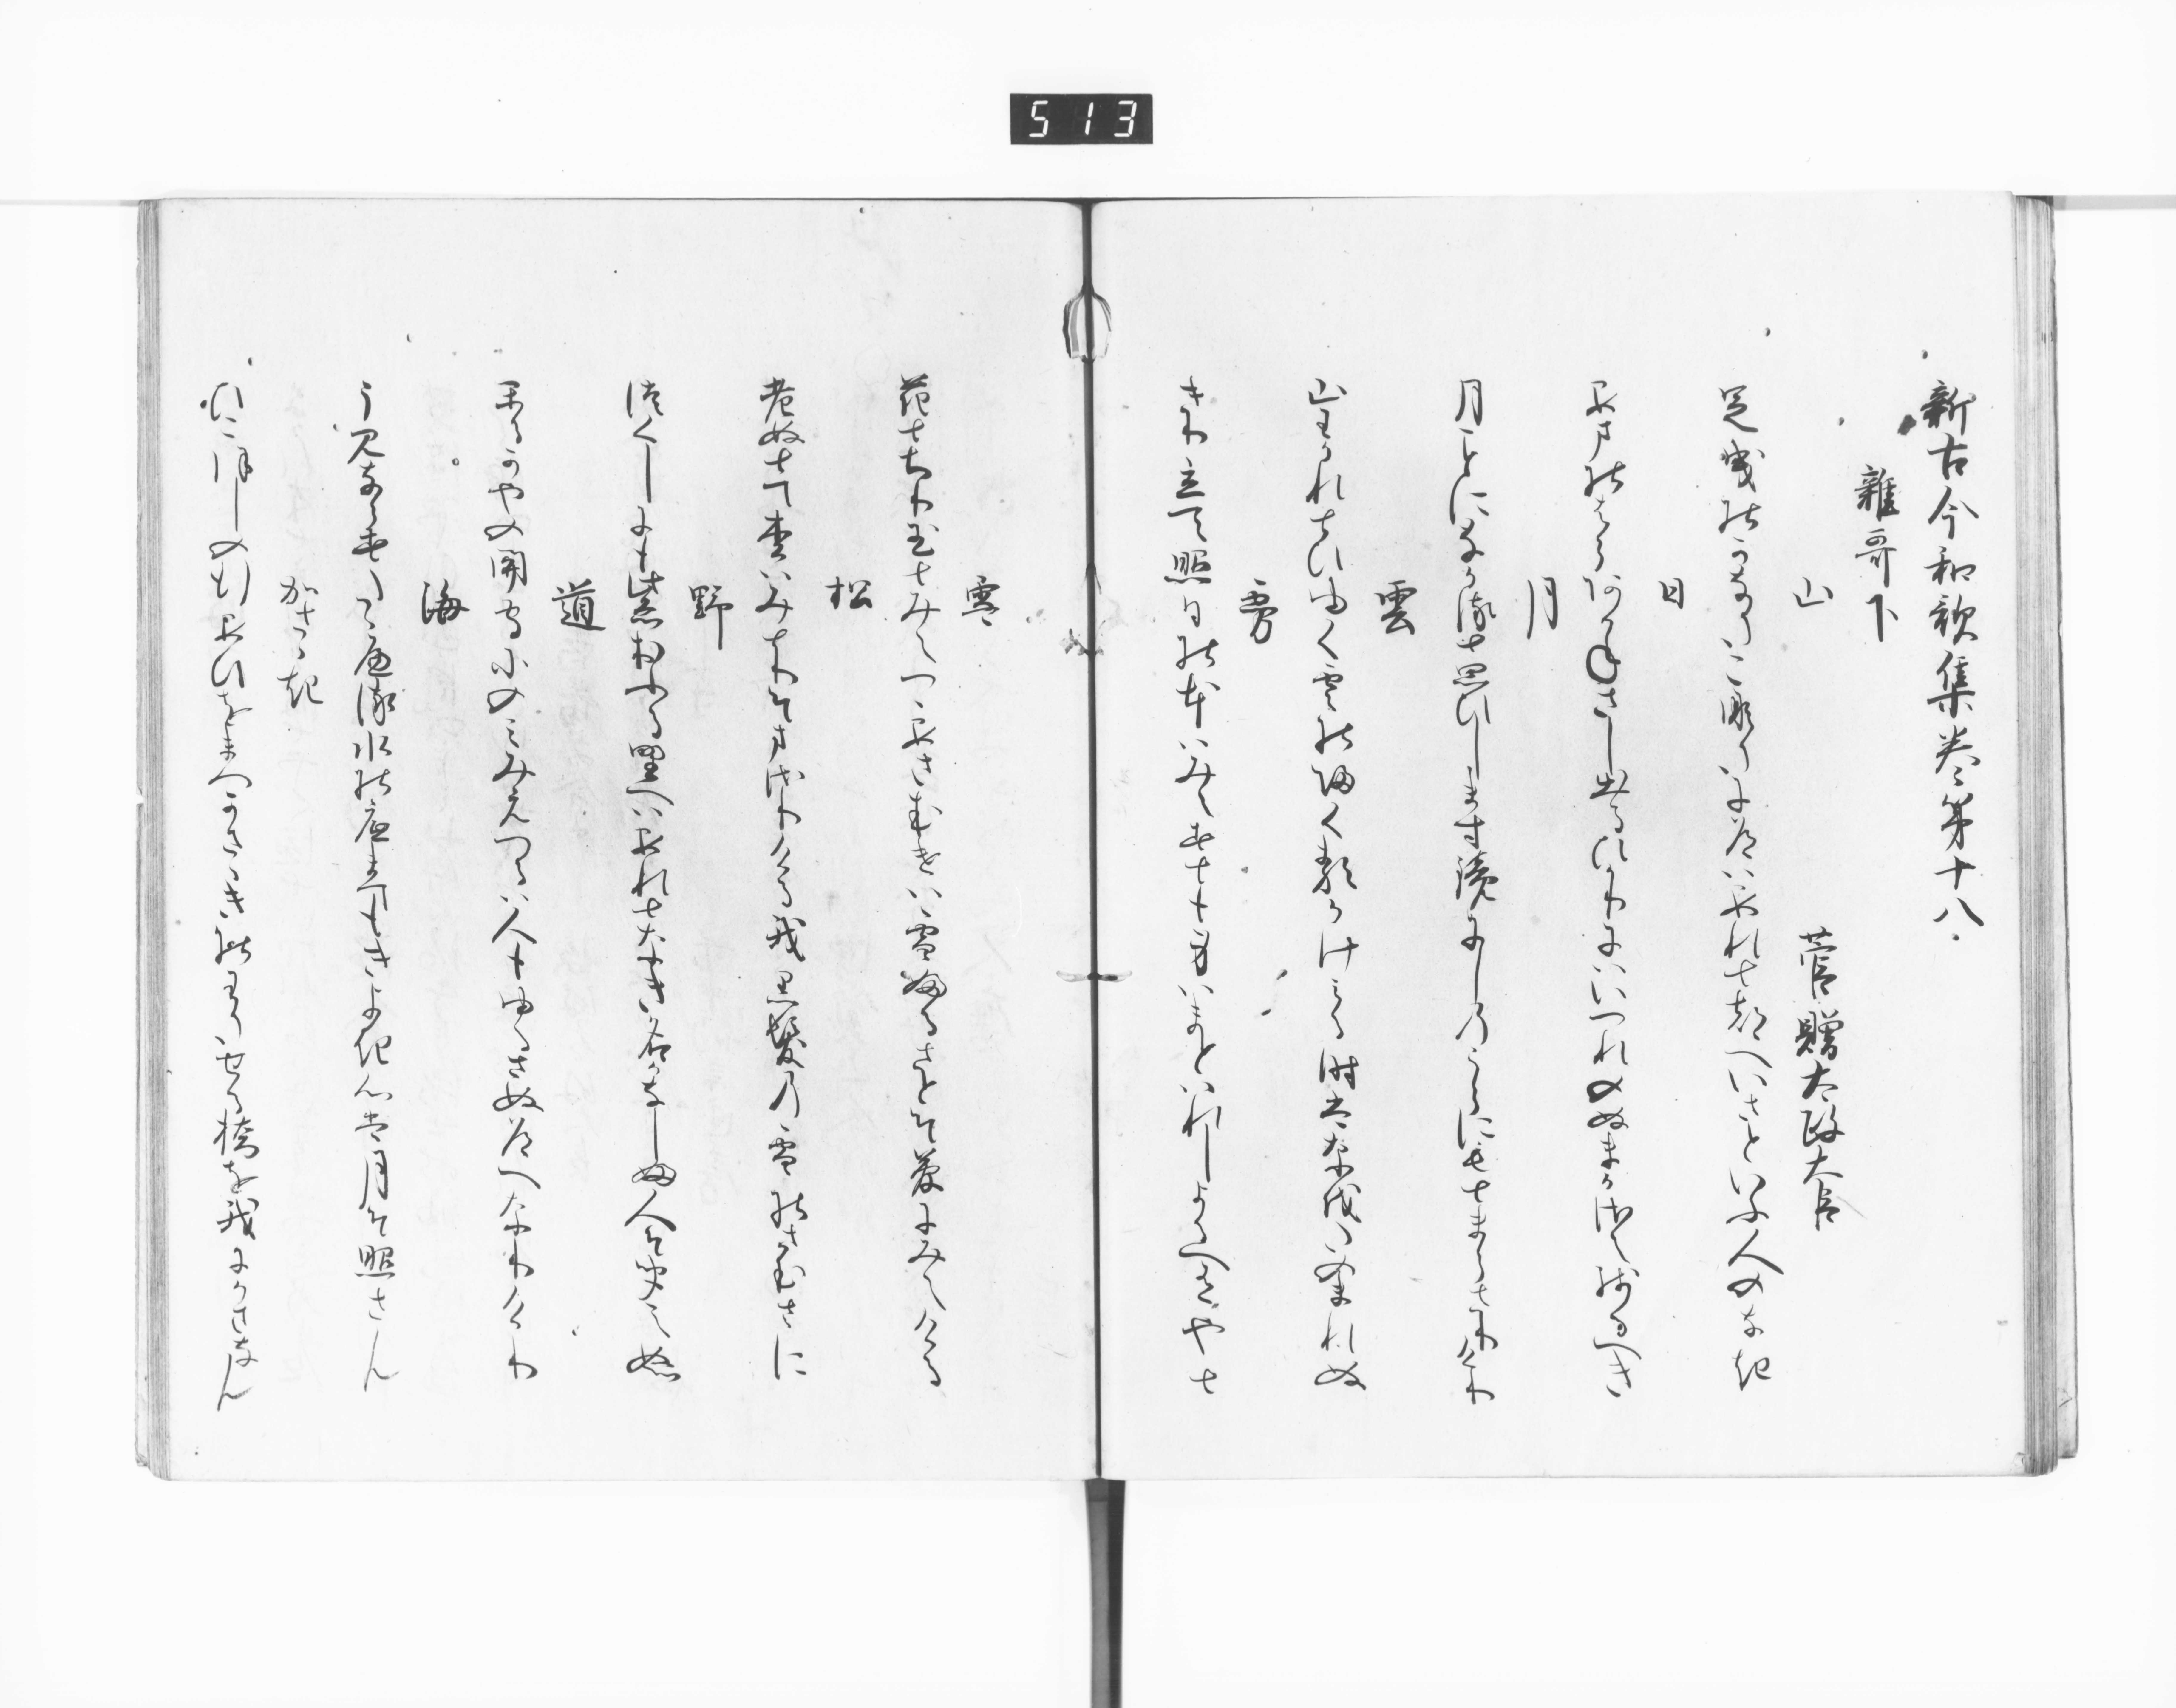 513
新古今和歌集巻第十八
雑哥下
山
菅贈太政大臣
足曳のかなたこなたに道はあれと都へいさといふ人のなき
日
あまのはらあかねさし出るひかりにはいつれのぬまかさえ残るへき
月
月ことになかると思ひします鏡にしのうらにもとまらさりけり
雲
山わかれとひゆく雲の帰くる影みる時は猶たのまれぬ
霧
きり立て照日の本はみえすとも身はまとはれしよるへありやと
雪
花とちり玉とみえつゝあさむけは雪ふるさとそ夢にみえける
松
老ぬとて松はみとりそまさりける我黒髪の雪のさむさに
野
つくしにも紫おふる野へはあれとなき名かなしふ人そ聞えぬ
道
かるかやの関守にのみみえつるは人もゆるさぬ道へなりけり
海
うみならすたゝへる水の底まてもきよき心は月そ照さん
かさゝき
ひこほしの行あひをまつかさゝきのわたせる橋を我にかさなん